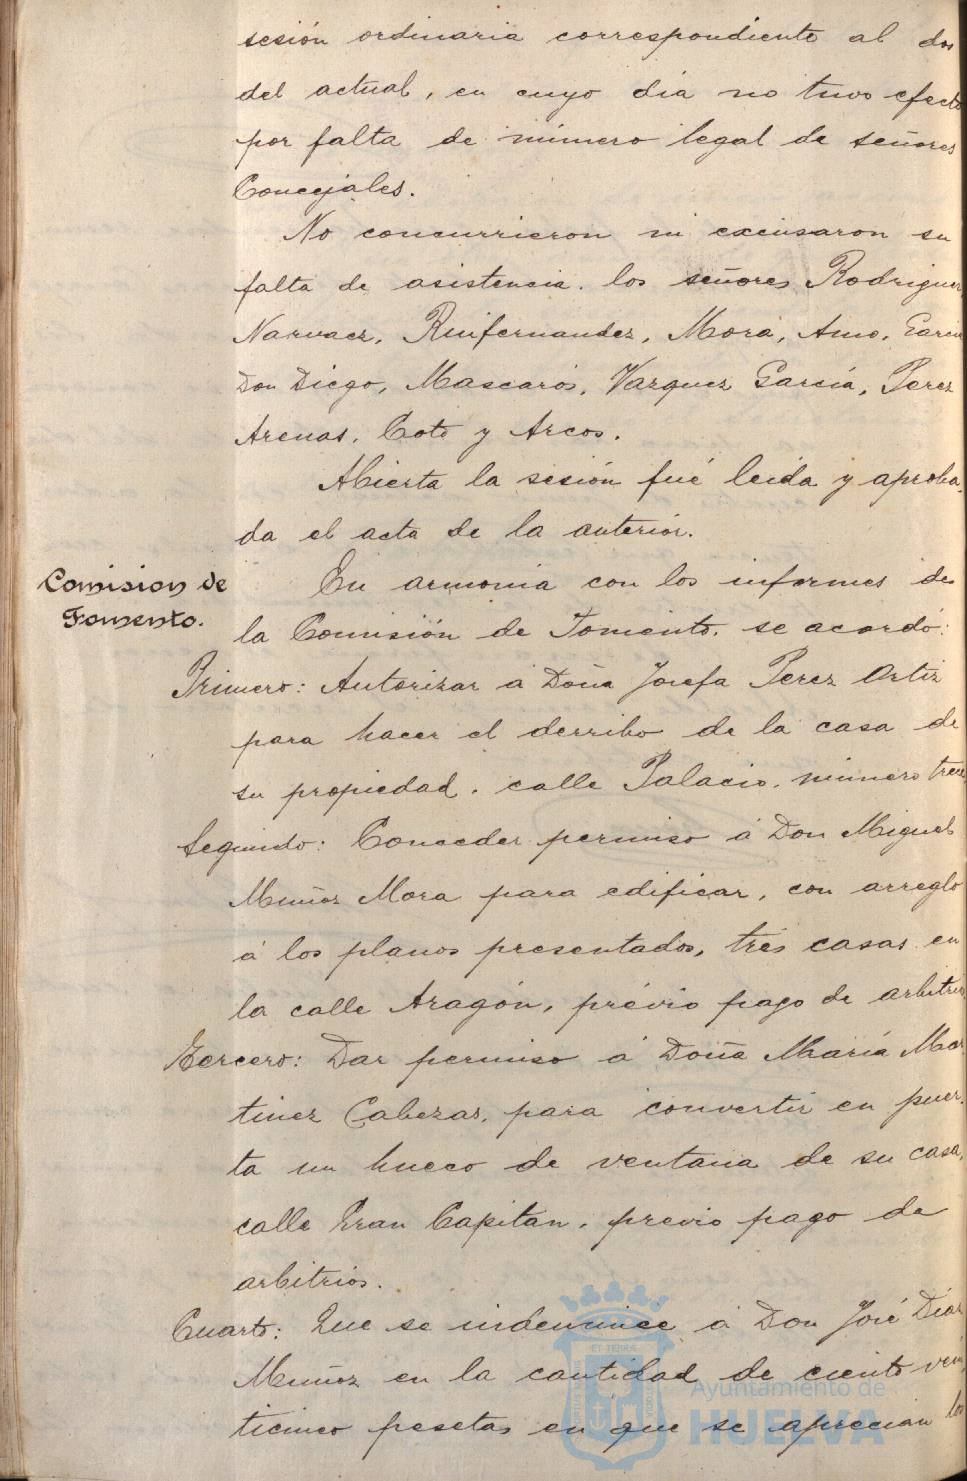 sesión ordinaria correspondiente al dos
del actual, en cuyo día no tuvo efecto
por falta de número legal de señores
Concejales.
No concurrieron ni excusaron su
falta de asistencia. los señores Rodriguez
Narvaez, Ruifernandez, Mora, Amo, Garcia
Don Diego, Mascarós, Vazquez García, Perez
Arenas, Coto y Arcos.
Abierta la sesión fué leida y aproba-
da el acta de la anterior.
Comision de
Fomento.
En armonia con los informes de
la Comisión de Fomento. se acordó:
Primero: Autorizar a Doña Josefa Perez Ortiz
para hacer el derribo de la casa de
su propiedad. calle Palacio. número trece
Segundo: Conceder permiso á Don Miguel
Muñoz Mora para edificar, con arreglo
á los planos presentados, tres casas en
la calle Aragón, prévio pago de arbitrios
Tercero: Dar permiso á Doña María Mar
tinez Cabezas, para convertir en puer-
ta un hueco de ventana de su casa,
calle Gran Capitan. previo pago de
arbitrios.
Cuarto: Que se indemnice á Don José Díaz
Muñoz en la cantidad de ciento vein
ticinco pesetas en que se aprecian los
Ayuntamiento de
HUELVA